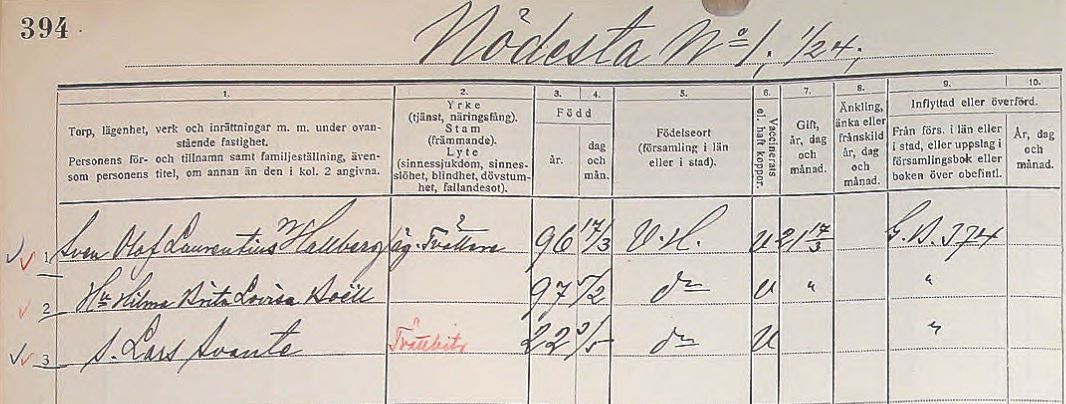 394
Nödesta No 1, 1/24;
1.
2.
3.
4.
5.
6.
7.
8.
9.
10.
Torp, lägenhet, verk och inrättningar m. m. under ovan-
stående fastighet.
Personens för- och tillnamn samt familjeställning, även-
som personens titel, om annan än den i kol. 2 angivna.
Yrke
(tjänst, näringsfång).
Stam
(främmande).
Lyte
(sinnessjukdom, sinnes-
slöhet, blindhet, dövstum-
het, fallandesot).
Född
år.
dag
och
mån.
Födelseort
(församling i län
eller i stad).
Vaccinerats
el. haft koppor.
Gift,
år, dag
och
månad.
Änkling,
änka eller
frånskild
år, dag
och
månad.
Inflyttad eller överförd.
Från förs. i län eller
i stad, eller uppslag i
församlingsbok eller
boken över obefintl.
År, dag
och
månad.
1 Sven Olof Laurentius Hallberg 96 17/3 V. H. v 21 17/3 G. B. 374
2 Hu Hilma Brita Lovisa 97 do v "  "
3 S. Lars Svante 22 do v "